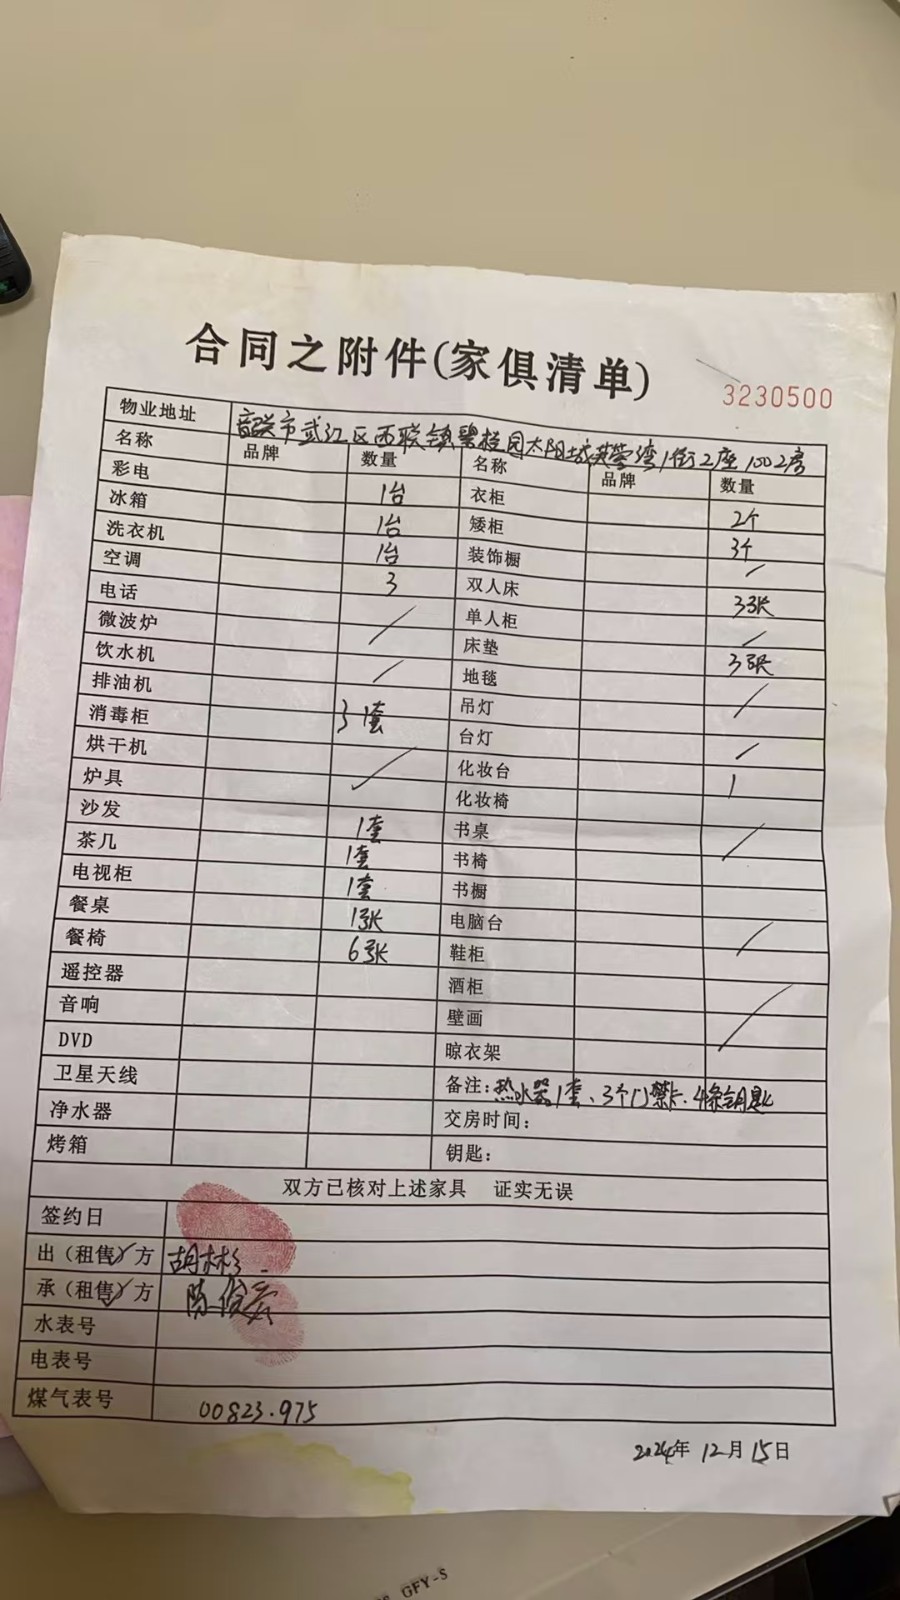 合同之附件(家俱清单)
3230500
物业地址 韶关市武江区西联镇碧桂园太阳城芙蓉湾1街2座1002房
名称 品牌 数量 名称 品牌 数量
彩电 1台 衣柜 2个
冰箱 1台 矮柜 3个
洗衣机 1台 装饰橱 /
空调 3 双人床 3张
电话 / 单人柜 /
微波炉 床垫 3张
饮水机 / 地毯 /
排油机 吊灯
消毒柜 3套 台灯 /
烘干机 / 化妆台 1
炉具 化妆椅
沙发 1套 书桌 /
茶几 1套 书椅
电视柜 1套 书橱
餐桌 1张 电脑台 /
餐椅 6张 鞋柜
遥控器 酒柜 /
音响 壁画
DVD 晾衣架
卫星天线 备注:热水器1套、3个门禁卡、4条钥匙
净水器 交房时间:
烤箱 钥匙:
双方已核对上述家具 证实无误
签约日
出(租售)方 胡林杉
承(租售)方 陈俊宏
水表号
电表号
煤气表号 00823.975
2024年12月15日
GFY-S